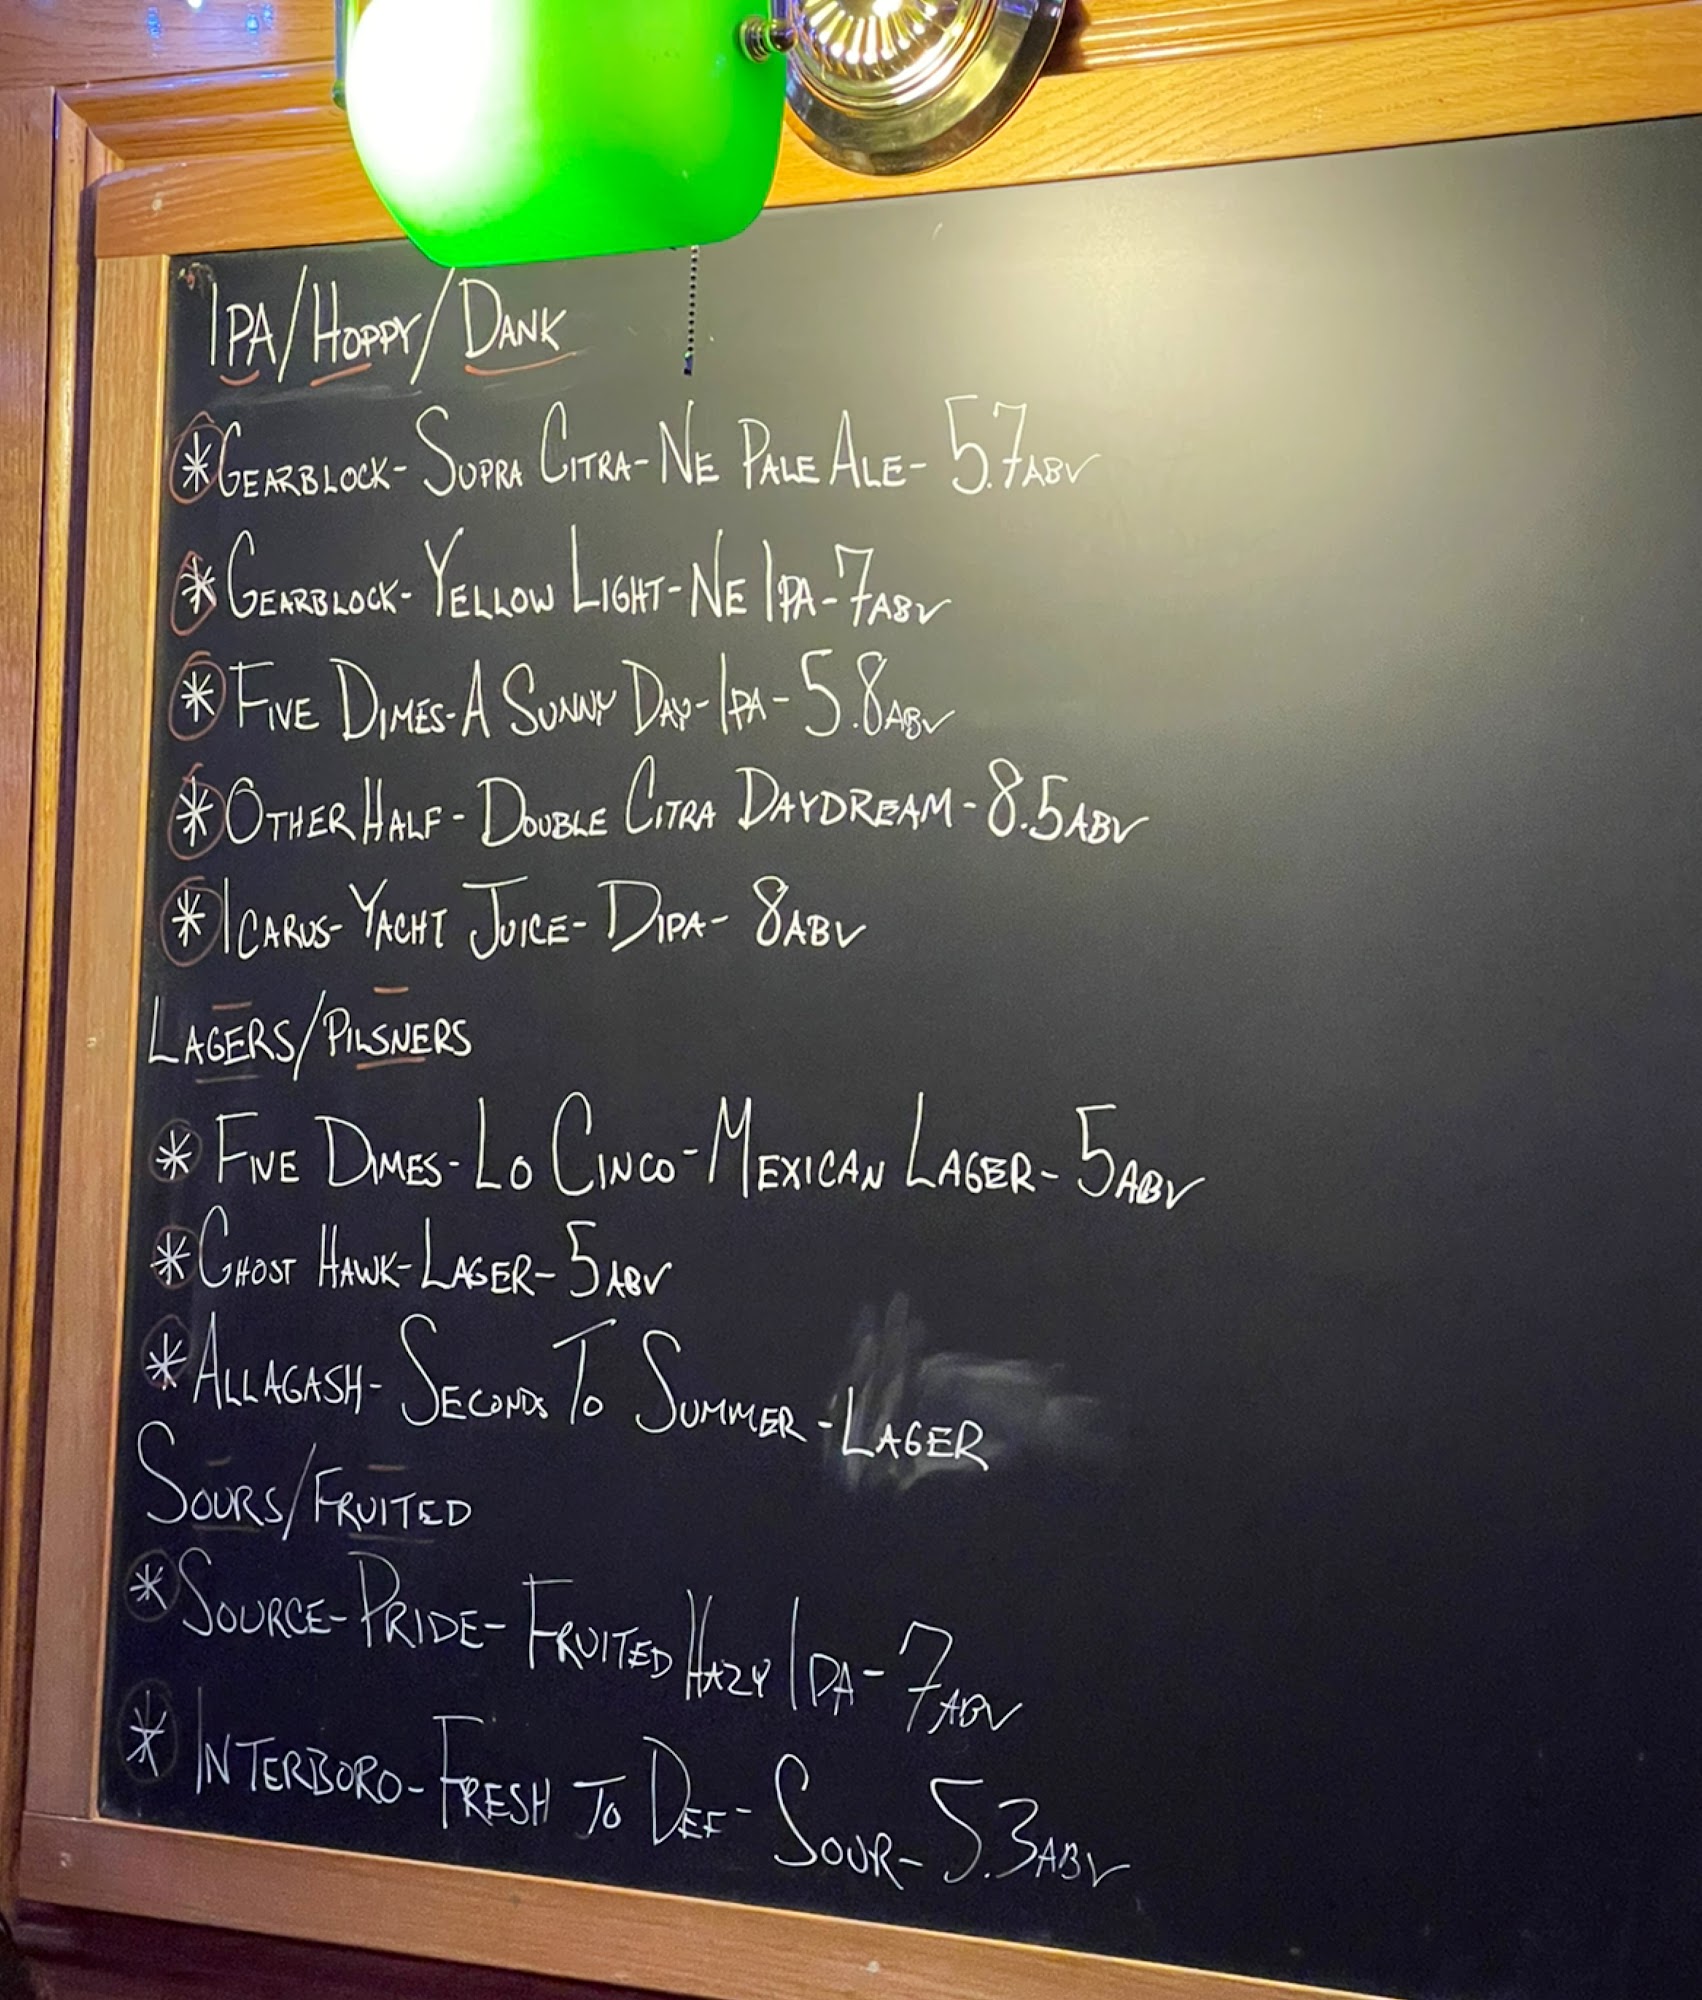 IPA/HOPPY/DANK
* GEARBLOCK - SUPRA CITRA - NE PALE ALE - 5.7 ABV
* GEARBLOCK - YELLOW LIGHT - NE IPA - 7 ABV
* FIVE DIMES - A SUNNY DAY - IPA - 5.8 ABV
* OTHER HALF - DOUBLE CITRA DAYDREAM - 8.5 ABV
* ICARUS - YACHT JUICE - DIPA - 8 ABV
LAGERS/PILSNERS
* FIVE DIMES - LO CINCO - MEXICAN LAGER - 5 ABV
* GHOST HAWK - LAGER - 5 ABV
* ALLAGASH - SECONDS TO SUMMER - LAGER
SOURS/FRUITED
* SOURCE - PRIDE - FRUITED HAZY IPA - 7 ABV
* INTERBORO - FRESH TO DEF - SOUR - 5.3 ABV